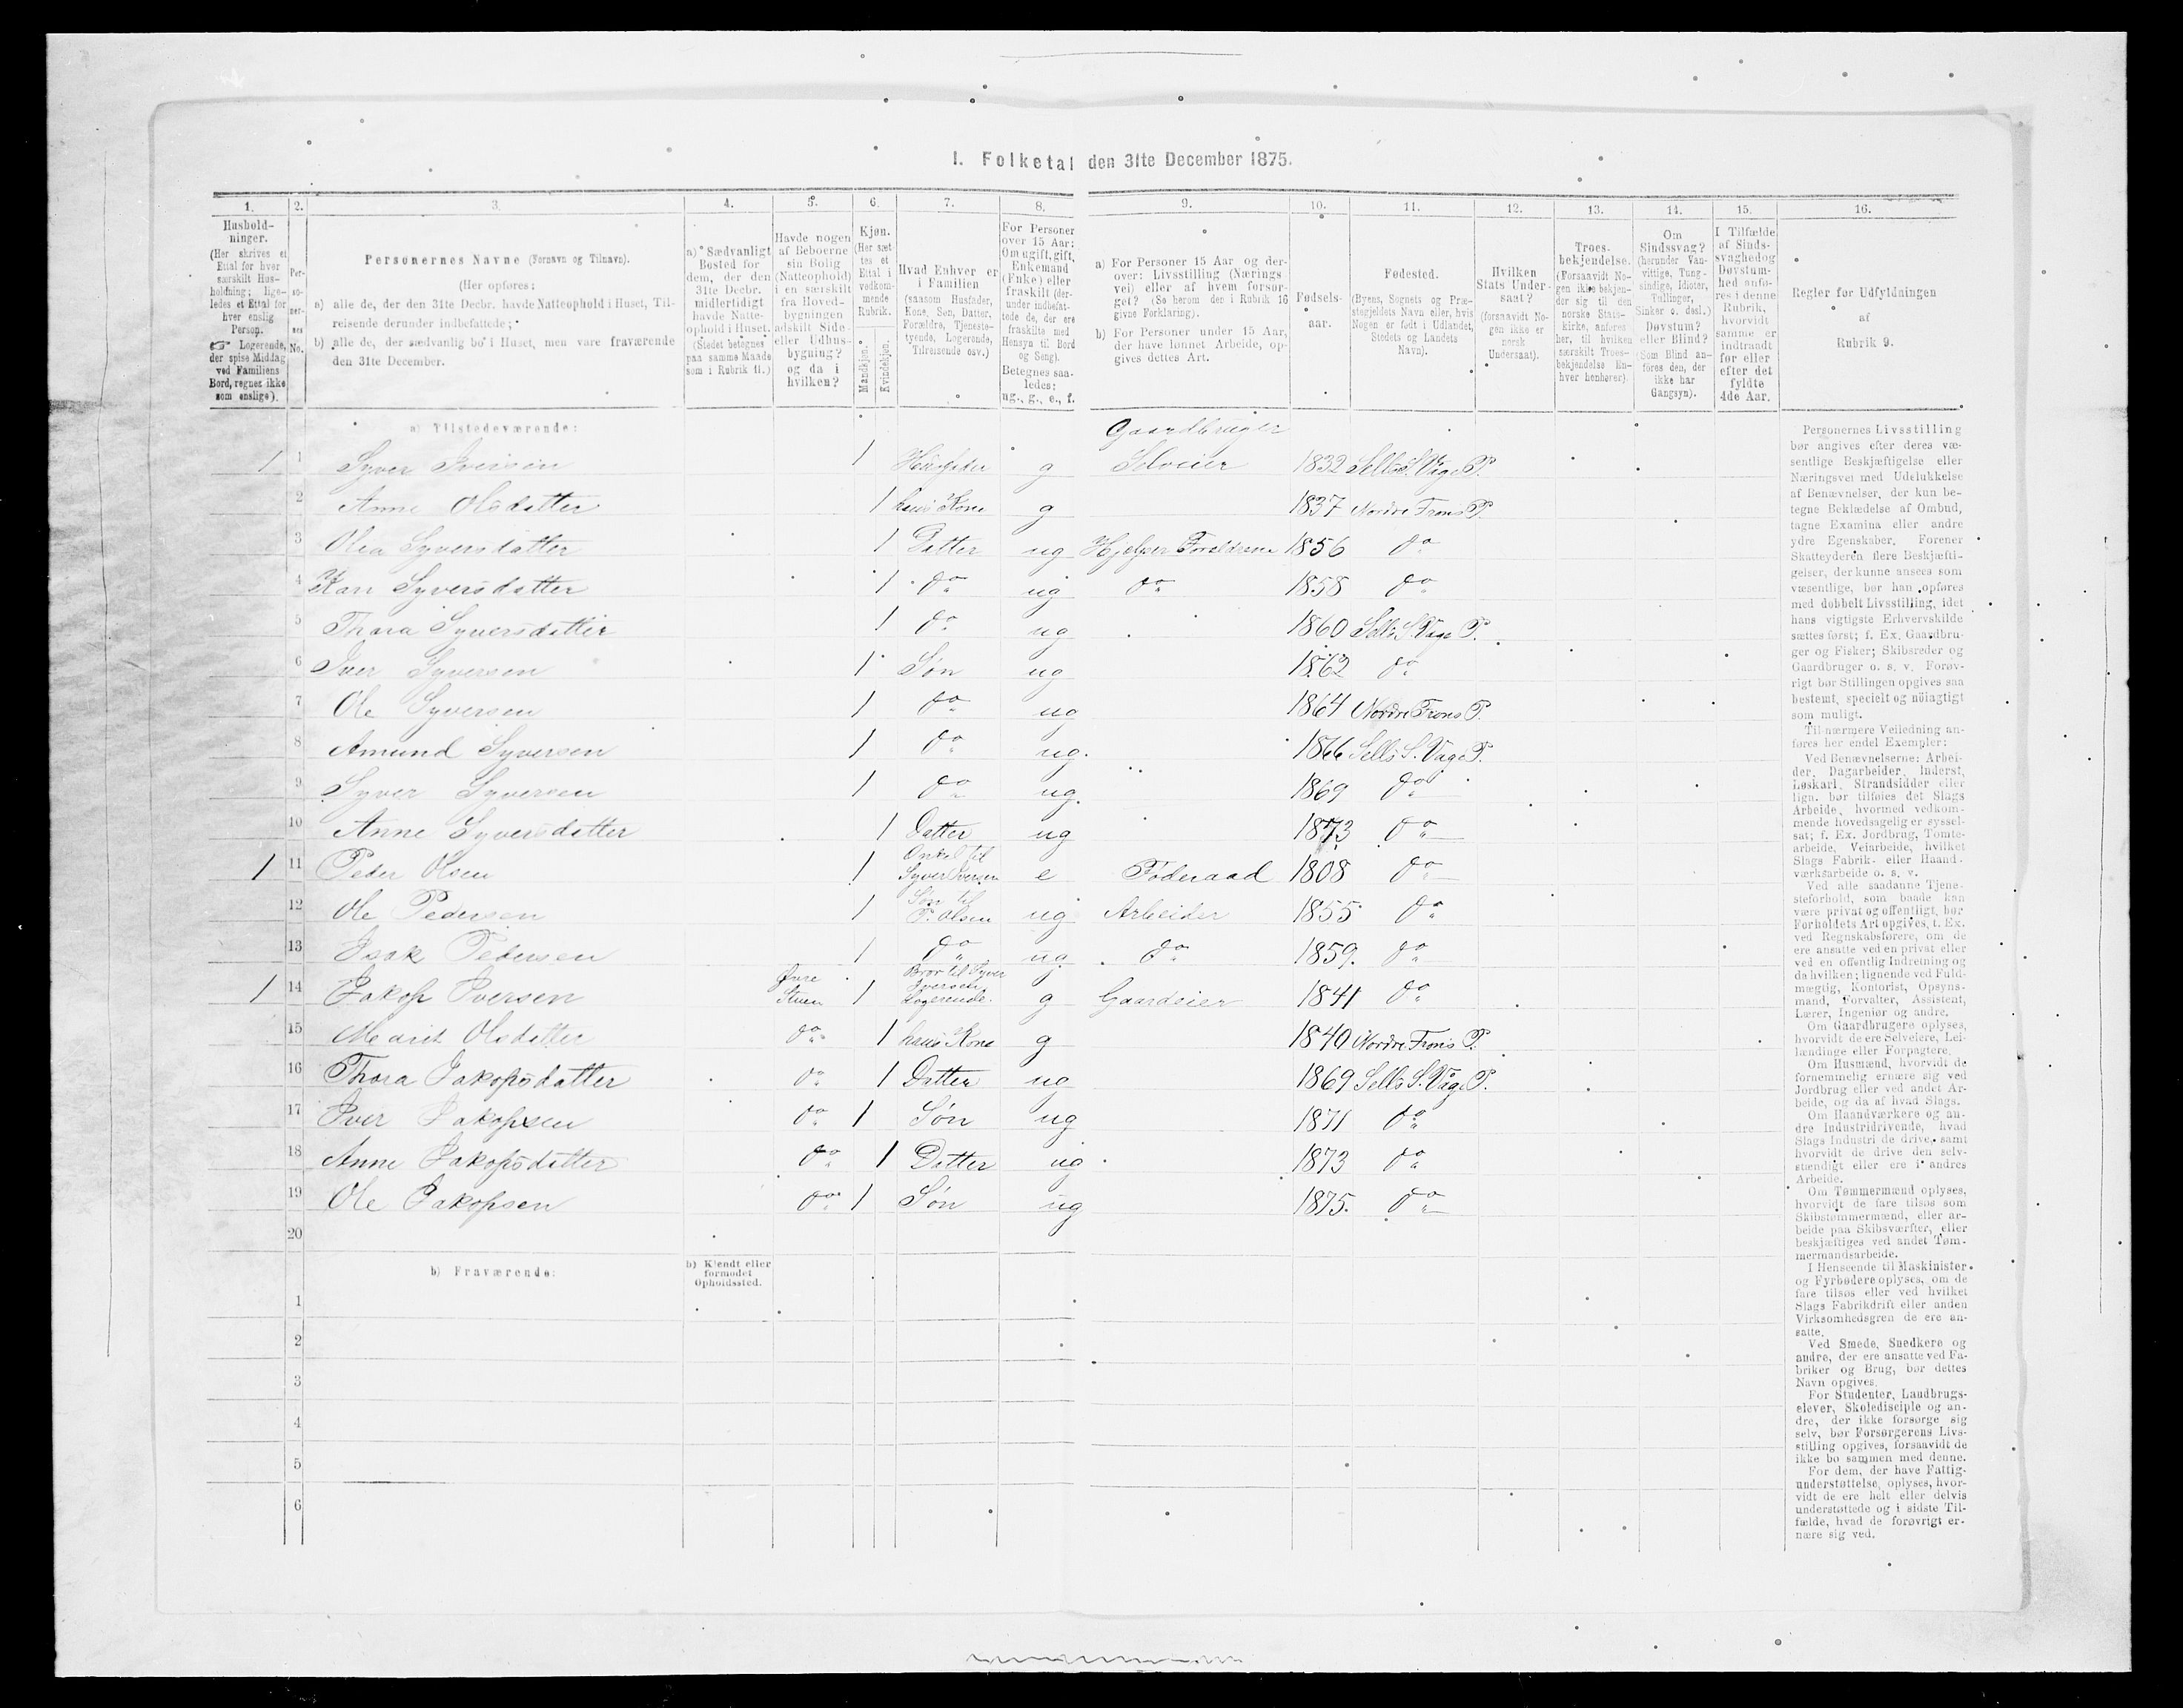 I. Folketal den 31te December 1875.
1. 2. 3. 4. 5. 6. 7. 8. 9. 10. 11. 12. 13. 14. 15. 16.
Hushold-
ninger.
(Her skrives et
Ettal for hver
særskilt Hus-
holdning; lige-
ledes et Ettal for
hver enslig
Person.
☞ Logerende,
der spise Middag
ved Familiens
Bord, regnes ikke
som enslige).
Per-
so-
ner-
nes
No.
Personernes Navne (Fornavn og Tilnavn).
(Her opføres:
a) alle de, der den 31te Decbr. havde Natteophold i Huset, Til-
reisende derunder indbefattede;
b) alle de, der sædvanlig bo i Huset, men vare fraværende
den 31te December.
a) Sædvanligt
Bosted for
dem, der den
31te Decbr.
midlertidigt
havde Natte-
ophold i Huset.
(Stedet betegnes
paa samme Maade
som i Rubrik 11.)
Havde nogen
af Beboerne
sin Bolig
(Natteophold)
i en særskilt
fra Hoved-
bygningen
adskilt Side-
eller Udhus-
bygning?
og da i
hvilken?
Kjøn.
(Her sæt-
tes et
Ettal i
vedkom-
mende
Rubrik.
Mandkjøn.
Kvindekjøn.
Hvad Enhver er
i Familien
(saasom Husfader,
Kone, Søn, Datter,
Forældre, Tjeneste-
tyende, Logerende,
Tilreisende osv.)
For Personer
over 15 Aar:
Om ugift, gift,
Enkemand
(Enke) eller
fraskilt (der-
under indbefat-
tede de, der ere
fraskilte med
Hensyn til Bord
og Seng).
Betegnes saa-
ledes:
ug., g., e., f.
a) For Personer 15 Aar og der-
over: Livsstilling (Nærings-
vei) eller af hvem forsør-
get? (So herom den i Rubrik 16
givne Forklaring).
b) For Personer under 15 Aar,
der have lønnet Arbeide, op-
gives dettes Art.
Fødsels-
aar.
Fødested.
(Byens, Sognets og Præ-
stegjeldets Navn eller, hvis
Nogen er født i Udlandet,
Stedets og Landets
Navn).
Hvilken
Stats Under-
saat?
(forsaavidt No-
gen ikke er
norsk
Undersaat).
Troes-
bekjendelse.
(Forsaavidt No-
gen ikke bekjen-
der sig til den
norske Stats-
kirke, anføres
her, til hvilken
særskilt Troes-
bekjendelse En-
hver henhører).
Om
Sindssvag?
(herunder Van-
vittige, Tung-
sindige, Idioter,
Tullinger,
Sinker o. desl.)
Døvstum?
eller Blind?
(Som Blind an-
føres den, der
ikke har
Gangsyn).
I Tilfælde
af Sinds-
svaghed og
Døvstum-
hed anfø-
res i denne
Rubrik,
hvorvidt
samme er
indtraadt
før eller
efter det
fyldte
4de Aar.
Regler for Udfyldningen
af
Rubrik 9.
a) Tilstedeværende:
Gaardbruger
1 1 Syver Iversen 1 Husfader g Selveier 1832 Sells S. Vage P.
2 Anne Olsdatter 1 hans Kone g 1837 Nordre Frons P.
3 Olea Syversdatter 1 Datter ug Hjelper Forældrene 1856 do
4 Kari Syversdatter 1 do ug do 1858 do
5 Thora Syversdatter 1 do ug 1860 Sells S. Vage P.
6 Iver Syversen 1 Søn ug 1862 do
7 Ole Syversen 1 do ug 1864 Nordre Frons P.
8 Amund Syversen 1 do ug. 1866 Sells S. Vage P.
9 Syver Syversen 1 do ug. 1869 do
10 Anne Syversdatter 1 Datter ug 1873 do
Onkel til
1 11 Peder Olsen 1 Syver Iversen e Føderaad 1808 do
Søn til
12 Ole Pedersen 1 P. Olsen ug Arbeider 1855 do
13 Isak Pedersen 1 do ug do 1859. do
Øvre Bror til Syver
Iversen
1 14 Jakop Iversen Stuen 1 Logerende. g Gaardeier 1841 do
15 Marit Olsdatter do 1 hans Kone g 1840 Nordre Frons P.
16 Thora Jakopsdatter do 1 Datter ug 1869 Sells S. Våge P.
17 Iver Jakopsen do 1 Søn ug 1871 do
18 Anne Jakopsdatter do 1 Datter ug 1873 do
19 Ole Jakopsen do 1 Søn ug 1875. do
20
b) Fraværende:
b) Kjendt eller
formodet
Opholdssted.
1
2
3
4
5
6
Personernes Livsstilling
bør angives efter deres væ-
sentlige Beskjæftigelse eller
Næringsvei med Udelukkelse
af Benævnelser, der kun be-
tegne Beklædelse af Ombud,
tagne Examina eller andre
ydre Egenskaber. Forener
Skatteyderen flere Beskjæfti-
gelser, der kunne ansees som
væsentlige, bør han opføres
med dobbelt Livsstilling, idet
hans vigtigste Erhvervskilde
sættes først; f. Ex. Gaardbru-
ger og Fisker; Skibsreder og
Gaardbruger o. s. v. Forøv-
rigt bør Stillingen opgives saa
bestemt, specielt og nöiagtigt
som muligt.
Til nærmere Veiledning an-
føres her endel Exempler:
Ved Benævnelserne: Arbei-
der, Dagarbeider, Inderst,
Løskarl, Strandsidder eller
lign. bør tilføies det Slags
Arbeide, hvormed vedkom-
mende hovedsagelig er syssel-
sat; f. Ex. Jordbrug, Tomte-
arbeide, Veiarbeide, hvilket
Slags Fabrik- eller Haand-
værksarbeide o. s. v.
Ved alle saadanne Tjene-
steforhold, som baade kan
være privat og offentligt, bør
Forholdets Art opgives, t. Ex.
ved Regnskabsførere, om de
ere ansatte ved en privat eller
ved en offentlig Indretning og
da hvilken; lignende ved Fuld-
mægtig, Kontorist, Opsyns-
mand, Forvalter, Assistent,
Lærer, Ingeniør og andre.
Om Gaardbrugere oplyses,
hvorvidt de ere Selveiere, Lei-
lændinge eller Forpagtere.
Om Husmænd, hvorvidt de
fornemmelig ernære sig ved
Jordbrug eller ved andet Ar-
beide, og da af hvad Slags.
Om Haandværkere og an-
dre Industridrivende, hvad
Slags Industri de drive, samt
hvorvidt de drive den selv-
stændigt eller ere i andres
Arbeide.
Om Tømmermænd oplyses,
hvorvidt de fare tilsøs som
Skibstømmermænd, eller ar-
beide paa Skibsværfter, eller
beskjæftiges ved andet Tøm-
mermandsarbeide.
I Henseende til Maskinister
og Fyrbødere oplyses, om de
fare tilsøs eller ved hvilket
Slags Fabrikdrift eller anden
Virksomhedsgren de ere an-
satte.
Ved Smede, Snedkere og
andre, der ere ansatte ved Fa-
briker og Brug, bør dettes
Navn opgives.
For Studenter, Landbrugs-
elever, Skoledisciple og an-
dre, der ikke forsørge sig
selv, bør Forsørgerens Livs-
stilling opgives, forsaavidt de
ikke bo sammen med denne.
For dem, der have Fattig-
understøttelse, oplyses, hvor-
vidt de ere helt eller delvis
understøttede og i sidste Til-
fælde, hvad de forøvrigt er-
nære sig ved.